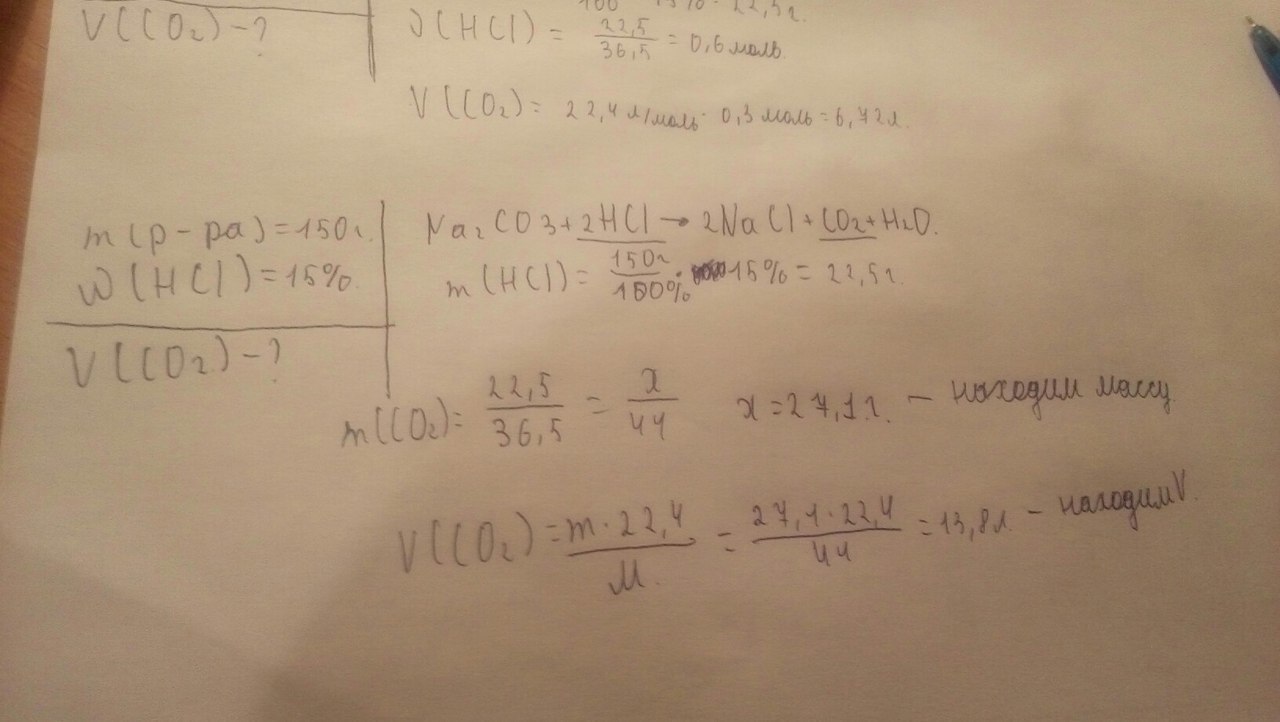 100 15% = 22,5г.
V(CO₂) - ?
ν(HCl) = 22,5/36,5 = 0,6 моль.
V(CO₂) = 22,4 л/моль · 0,3 моль = 6,72л.
m(р-ра) = 150г.
Na₂CO3 + 2HCl → 2NaCl + CO₂ + H₂O.
W(HCl) = 15%.
m(HCl) = 150г/100% · 15% = 22,5г.
V(CO₂) - ?
m(CO₂) = 22,5/36,5 = x/44 x = 27,1г. – находим массу
V(CO₂) = m · 22,4/M. = 27,1 · 22,4/44 = 13,8л – находим V.